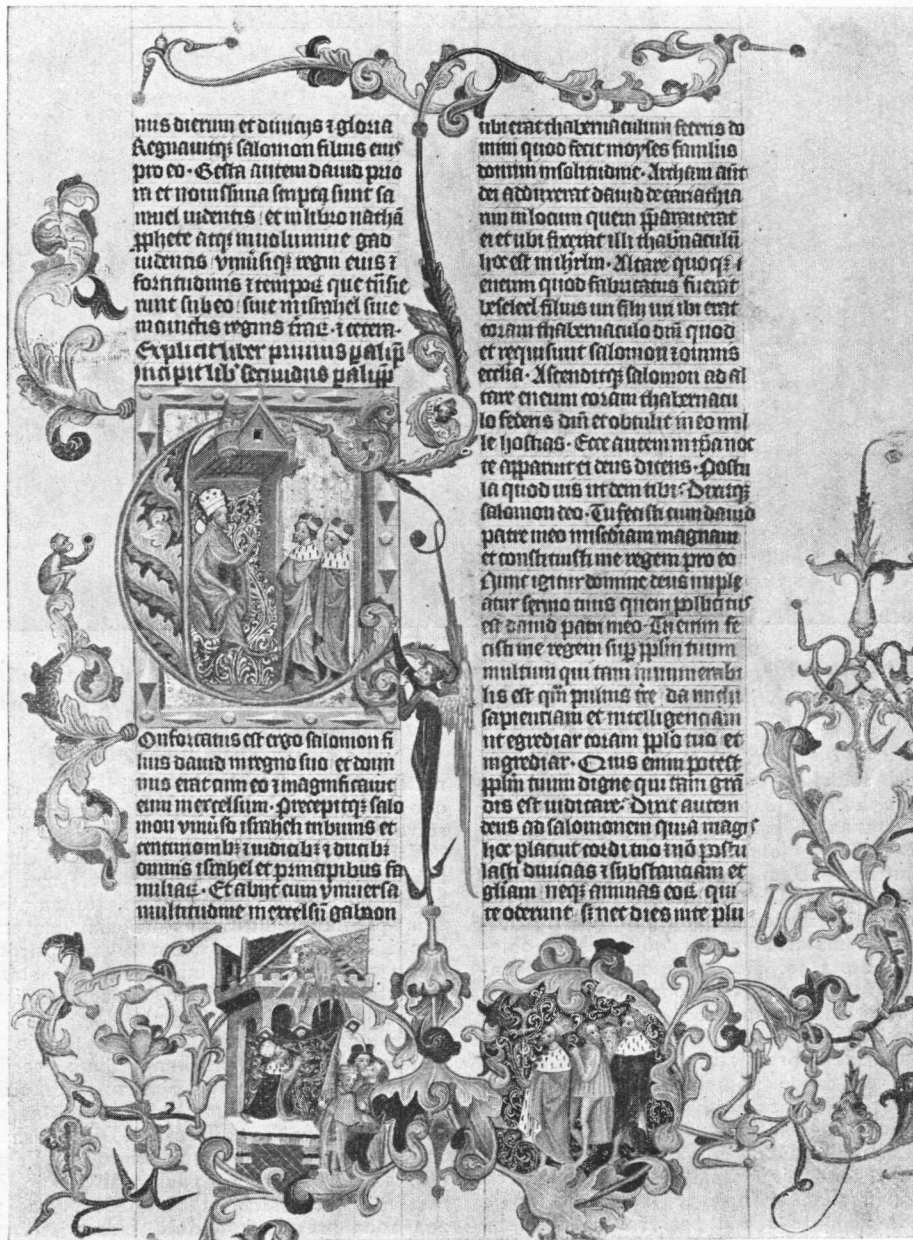 nus dierum et diuicijs ⁊ gloria
Regnauitqꝫ salomon filius eius
pro eo · Gesta autem dauid prio
ra et nouissima scripta sunt sa
muel uidentis · et in libro nathā
ꝓphete atqꝫ in uolumine gad
uidentis · vniūsiqꝫ regni eius ⁊
fortitudinis ⁊ temporꝝ que trāsie
runt sub eo · siue in israhel siue
in cunctis regnis trāꝝ · ⁊ cetera ·
Explicit liber primus palip̄
incipit lib secundus palipp̄
Onfortatus est ergo salomon fi
lius dauid in regno suo et domi
nus erat cum eo ⁊ magnificauit
eum in excelsum · Precepitqꝫ salo
mon vniūso israheli tribunis et
centurionibꝫ ⁊ iudicibꝫ ⁊ ducibꝫ
omnis israhel et principibus fa
miliaꝝ · Et abiit cum vniuersa
multitudine in excelsū gabaon
ubi erat thabernaculum federis do
mini quod fecit moyses famulus
domini in solitudine · Archam aūt
dei adduxerat dauid de cariathia
rim in locum quem p̄parauerat
ei et ubi fixerat illi thabnaculū
hoc est in ihrlm · Altare quoqꝫ
eneum quod fabricatus fuerat
beseleel filius uri filij ur ibi erat
coram thabernaculo dn̄i quod
et requisiuit salomon ⁊ omnis
ecclia · Ascenditqꝫ salomon ad al
tare eneum coram thabernacu
lo federis dn̄i et obtulit in eo mil
le hostias · Ecce autem in ip̄a noc
te apparuit ei deus dicens · Postu
la quod uis ut dem tibi · Dixitqꝫ
salomon deo · Tu fecisti cum dauid
patre meo misēdiam magnam
et constituisti me regem pro eo
Nunc igitur domine deus imple
atur sermo tuus quem pollicitus
est dauid patri meo · Tu enim fe
cisti me regem sup pplm tuum
multum qui tam innumerabi
lis est qm̄ puluis tr̄e da michi
sapienciam et intelligenciam
ut egrediar coram pplo tuo et
ingrediar · Quis enim potest
pplm tuum digne qui tam grā
dis est iudicare · Dixit autem
deus ad salomonem quia magis
hoc placuit cordi tuo ⁊ nō postu
lasti diuicias ⁊ substanciam et
gliam neqꝫ animas eoꝝ qui
te oderunt sꝫ nec dies uite plu